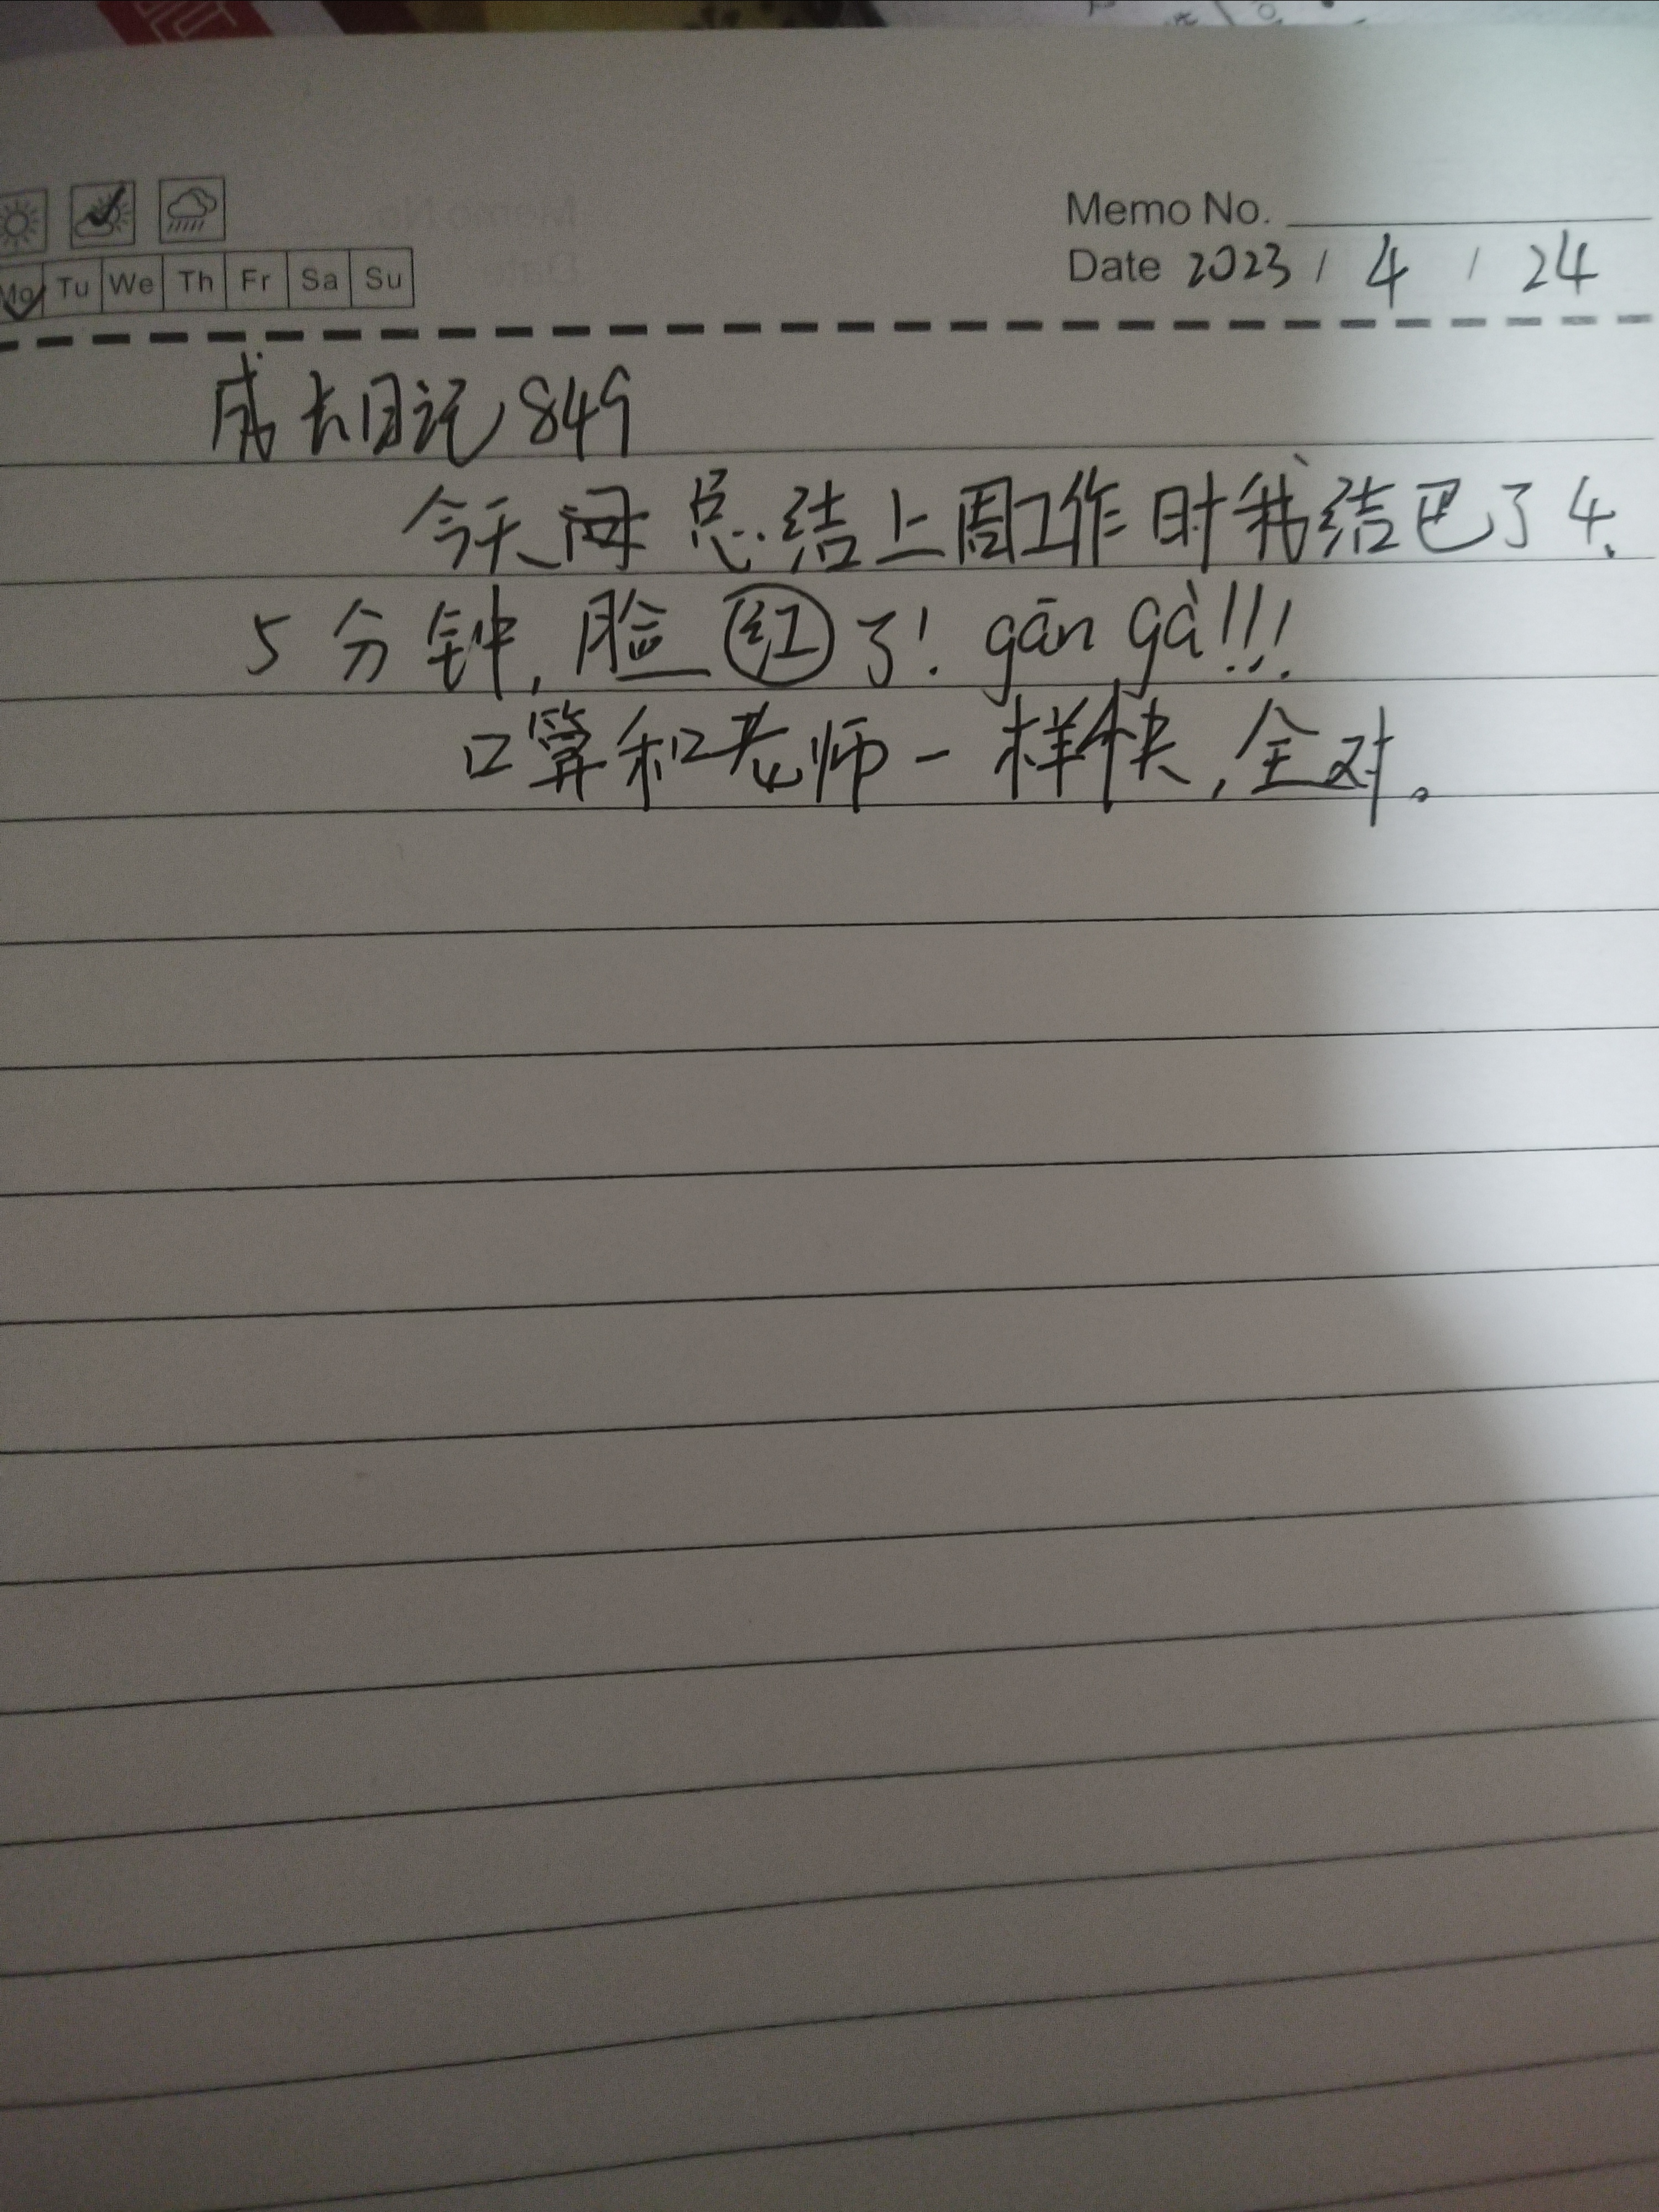 Memo No.
Date 2023 / 4 / 24
Mo Tu We Th Fr Sa Su
成长日记849
今天 总结上周工作时我结巴了4、
5分钟,脸红了! gān gà!!!
口算和老师一样快,全对。